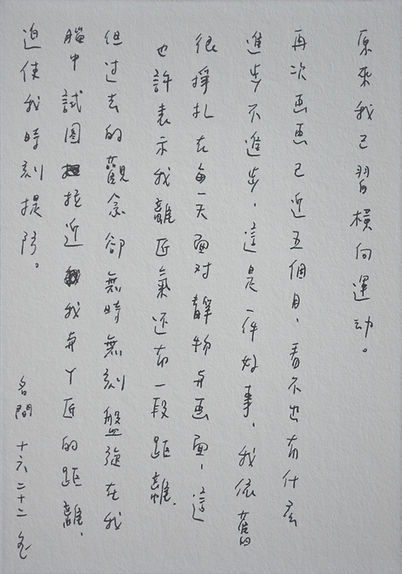 原來我已習橫向運动。
再次画画已近五個月，看不出有什么
進步不進步，這是一件好事，我依舊
很掙扎在每一天面对靜物与画面，這
也許表示我離匠氣还有一段距離，
但过去的觀念卻無時無刻盤旋在我
腦中試圖拉近我与丫匠的距離，
迫使我時刻提防。
名間 十六 二十二